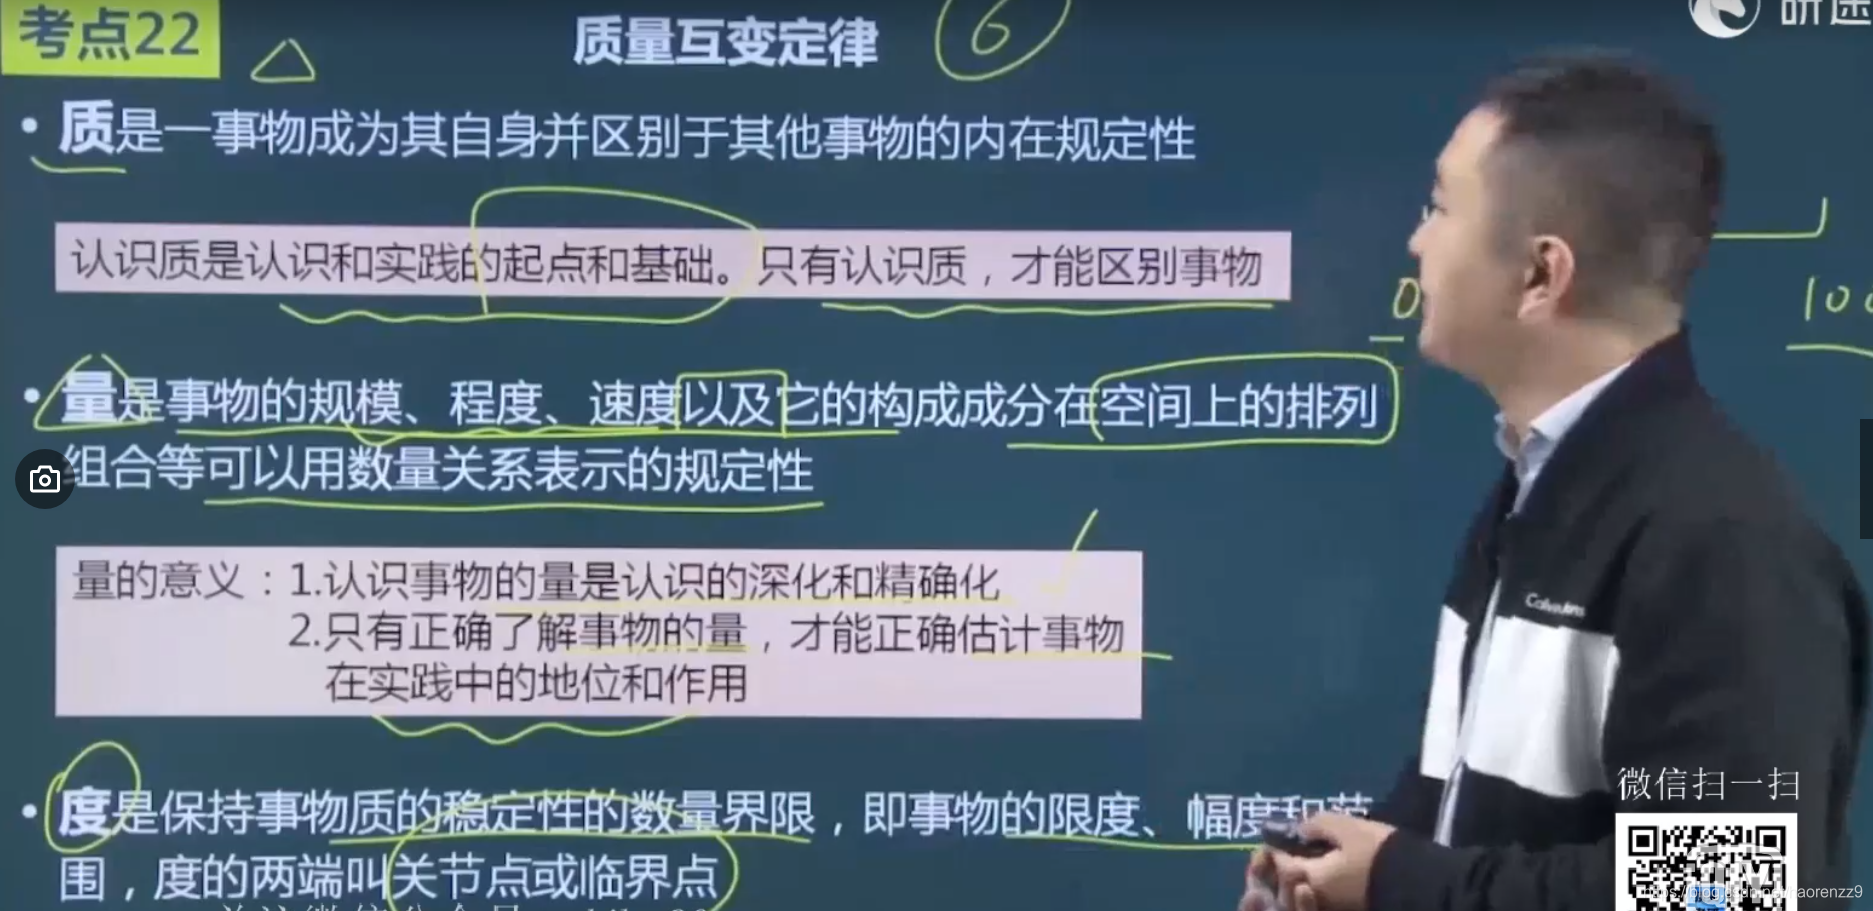 考点22
质量互变定律
6
研途
• 质是一事物成为其自身并区别于其他事物的内在规定性
认识质是认识和实践的起点和基础。只有认识质，才能区别事物
0
100
• 量是事物的规模、程度、速度以及它的构成成分在空间上的排列
组合等可以用数量关系表示的规定性
量的意义：1.认识事物的量是认识的深化和精确化
2.只有正确了解事物的量，才能正确估计事物
在实践中的地位和作用
• 度是保持事物质的稳定性的数量界限，即事物的限度、幅度和范
围，度的两端叫关节点或临界点
微信扫一扫